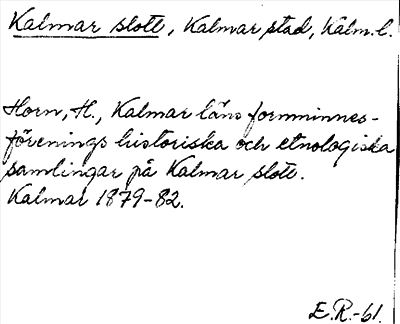 Kalmar slott, Kalmar stad, Kalm.l.
Horn, H., Kalmar läns fornminnes-
förenings historiska och etnologiska
samlingar på Kalmar slott.
Kalmar 1879-82.
E.R.-61.